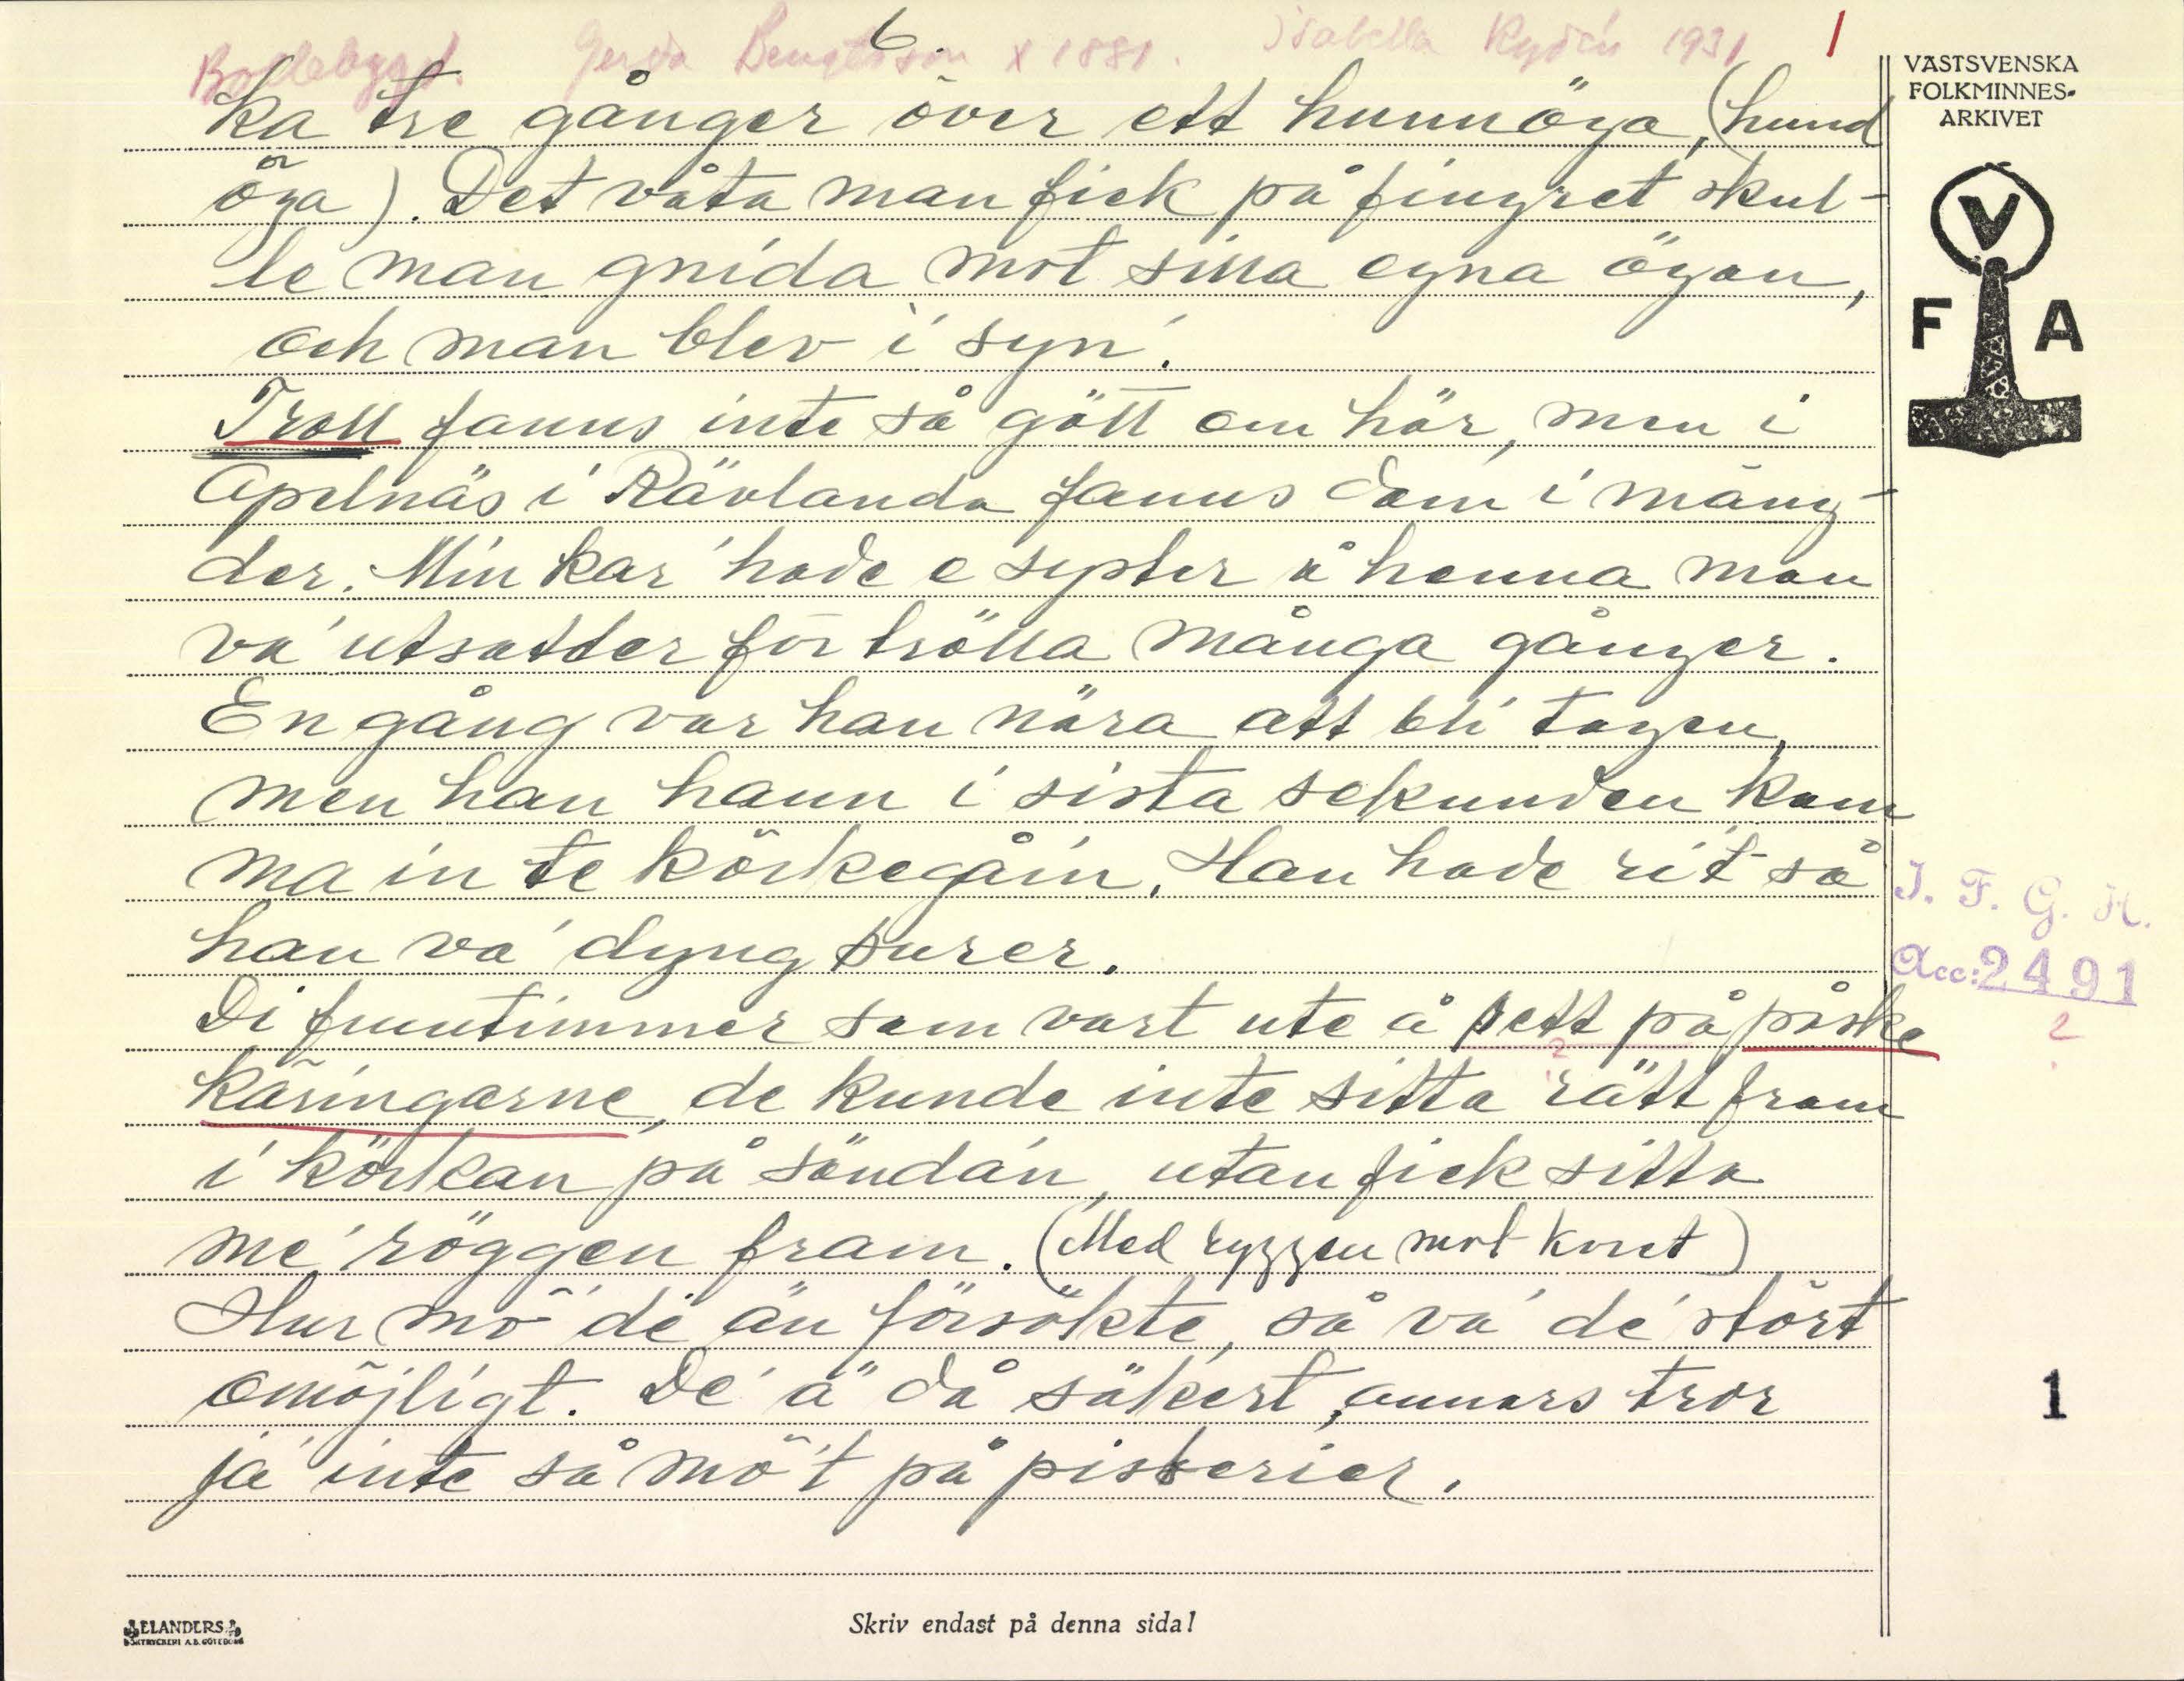 6.
Bollebygd. Gerda Bengtsson x 1881. Isabella Rydén 1931
1
VÄSTSVENSKA
FOLKMINNES-
ARKIVET
V
F A
ka tre gånger över ett hunnöga, (hund
öga). Det våta man fick på fingret skul-
le man gnida mot sina egna ögon,
och man blev i syn.
Troll fanns inte så gött om här, men i
Apelnäs i Rävlanda fanns dom i mäng-
der. Min kar hade e syster å henna man
va' utsatter för trölla många gånger.
En gång var han nära att bli tagen,
men han hann i sista sekunden kom
ma in te körkegåin. Han hade rit så
han va' dyng surer.
Di fruntimmer som vart ute å sett på påske
käringarne, de kunde inte sitta rätt fram
i körkan på söndan, utan fick sitta
me' röggen fram. (Med ryggen mot koret)
Hur mö' di än försökte, så va' de' stört
omöjligt. De' ä' då säkert, annars tror
ja' inte så mö't på piskerier.
I. F. G. H.
Acc: 2491
2
1
ELANDERS
BOKTRYCKERI A.B. GÖTEBORG
Skriv endast på denna sida!